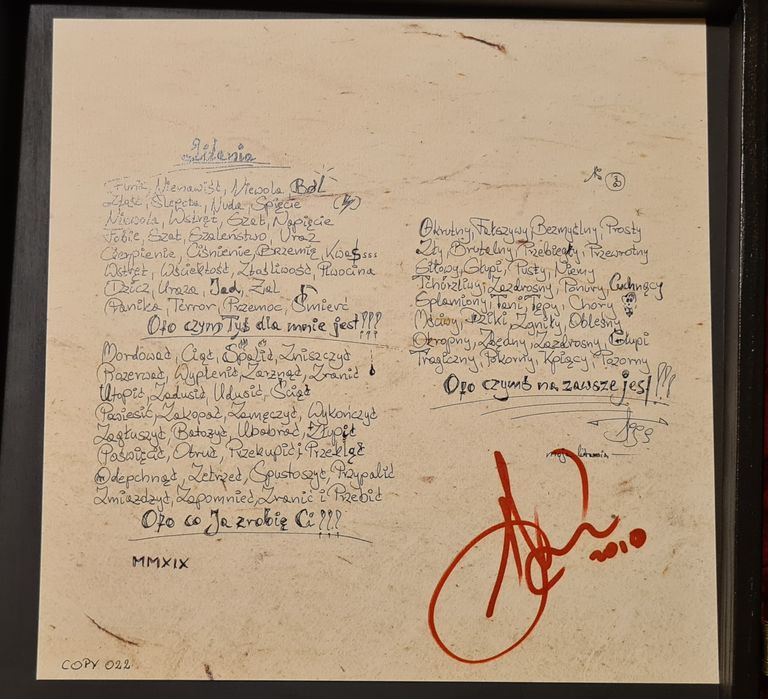 Litania
Furia, Nienawiść, Niewola, Ból
Złość, Ślepota, Nuda, Spięcie
Niewola, Wstręt, Szał, Napięcie
Fobie, Szał, Szaleństwo, Uraz
Cierpienie, Ciśnienie, Brzemię, Kwa$sss
Wstręt, Wściekłość, Złośliwość, Piwocina
Dzicz, Uraza, Jad, Żal
Panika, Terror, Przemoc, Śmierć
Oto czym Tyś dla mnie jest!!!
Mordować, Ciąć, Spalić, Zniszczyć
Rozerwać, Wyplenić, Zarżnąć, Zranić
Utopić, Zadusić, Udusić, Ściąć
Powiesić, Zakopać, Zamęczyć, Wykończyć
Zagłuszyć, Batożyć, Złupić
Poświęcić, Otruć, Przekupić i Przekląć
Odepchnąć, Zetrzeć, Spustoszyć, Przypalić
Zmiażdżyć, Zapomnieć, Zranić i Przebić
Oto co Ja zrobię Ci!!!
MMXIX
COPY 022
Okrutny, Fałszywy, Bezmyślny, Prosty
Zły, Brutalny, Przebiegły, Przewrotny
Głupi, Pusty, Niemy
Tchórzliwy, Zazdrosny, Ponury, Cuchnący
Splamiony, Tani, Tępy, Chory
Mściwy, Dziki, Zgniły, Obleśny
Okropny, Zbędny, Zazdrosny, Głupi
Tragiczny, Pokorny, Kpiący, Pozorny
Oto czymś na zawsze jest!!!
2010